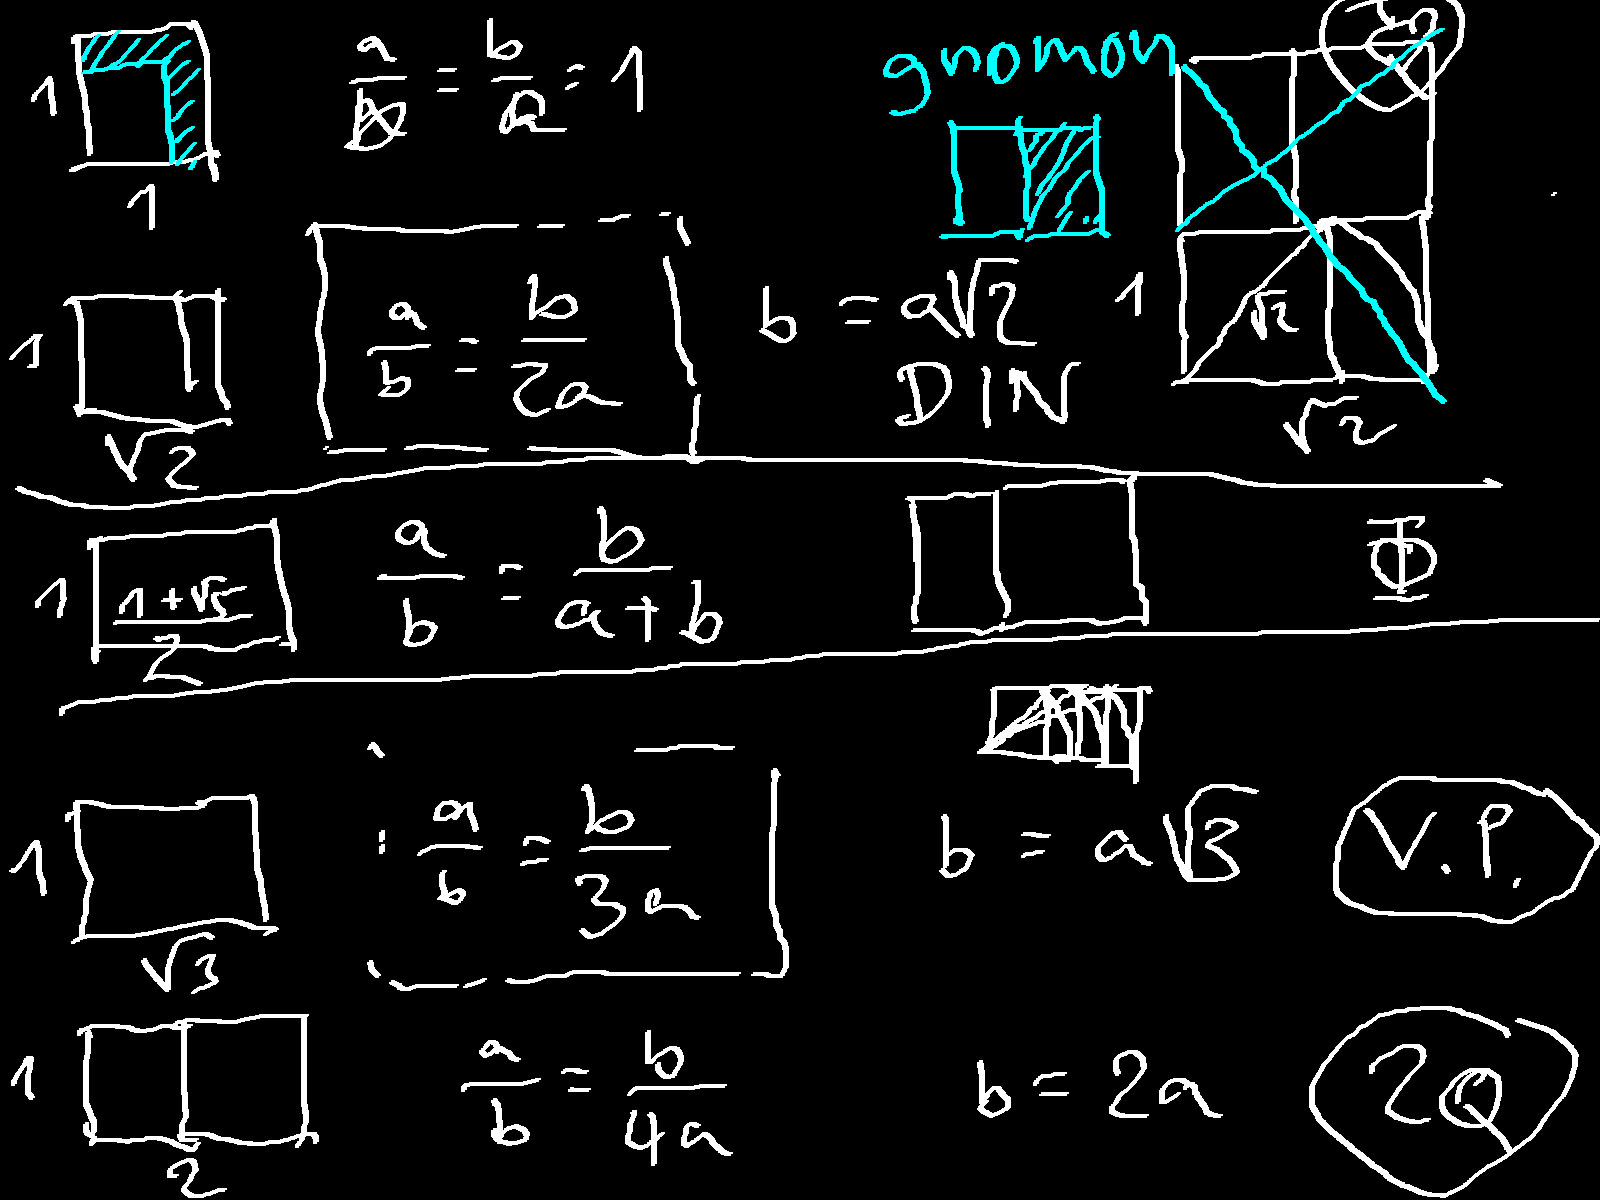 1 a/b = b/a = 1 gnomon
1
1 a/b = b/2a b = a√2 1 √2
DIN
√2 √2
1 1+√5/2 a/b = b/a+b Φ
1 a/b = b/3a b = a√3 V.P.
√3
1 a/b = b/4a b = 2a 2Q
2